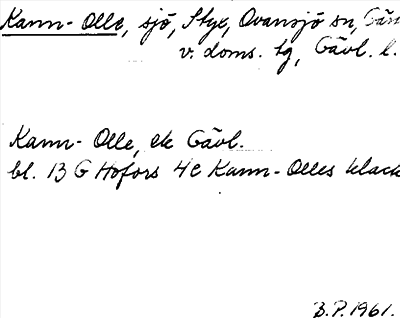 Kann-Olle, sjö, Stye, Ovansjö sn, Gäv
v. doms. tg, Gävl. l.
Kann-Olle, ek Gävl.
bl. 13 G Hofors 4c Kann-Olles klack
B.P. 1961.